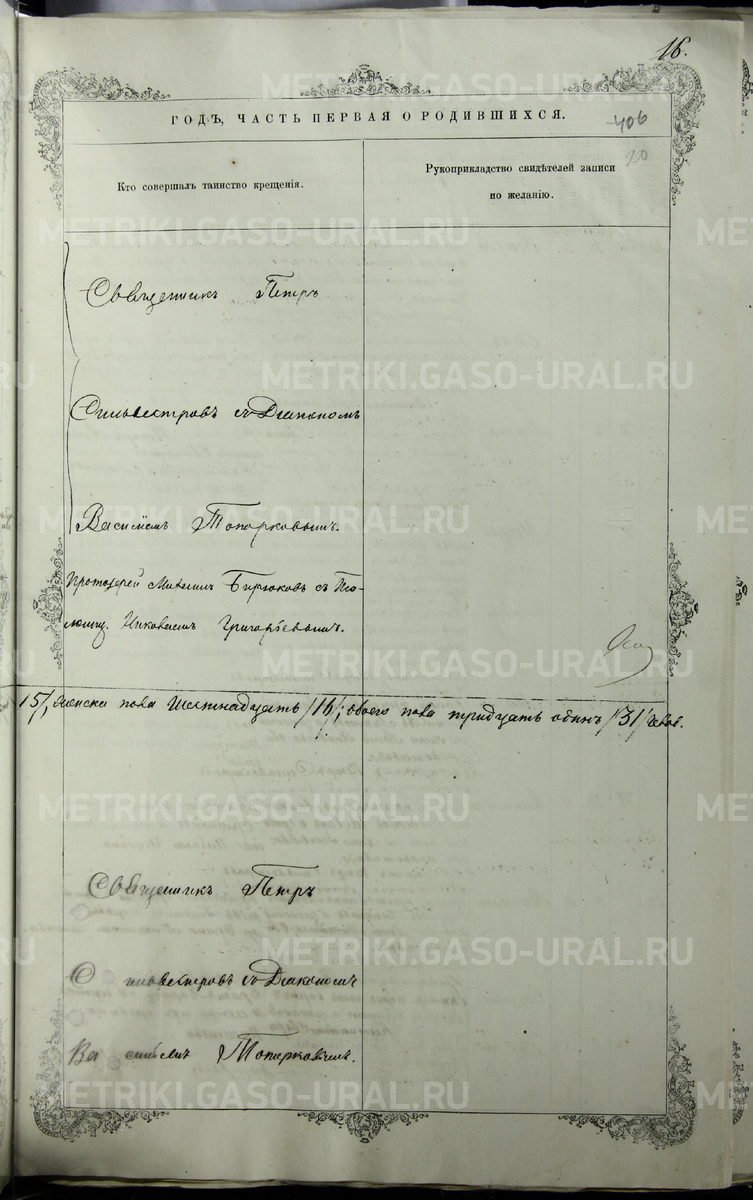 16.
ГОДЪ, ЧАСТЬ ПЕРВАЯ О РОДИВШИХСЯ.
406
20
Кто совершалъ таинство крещенія.
Рукоприкладство свидѣтелей записи
по желанію.
Священникъ Петръ
Сильвестровъ съ Діакономъ
Василіемъ Топорковымъ.
Протоіерей Михаилъ Бирюковъ съ Пса-
ломщ. Николаемъ Григорьевымъ.
15/, женска пола шестнадцать /16/; обоего пола тридцать одинъ /31/ челов.
Священникъ Петръ
Сильвестровъ съ Діакономъ
Василіемъ Топорковымъ.
METRIKI.GASO-URAL.RU